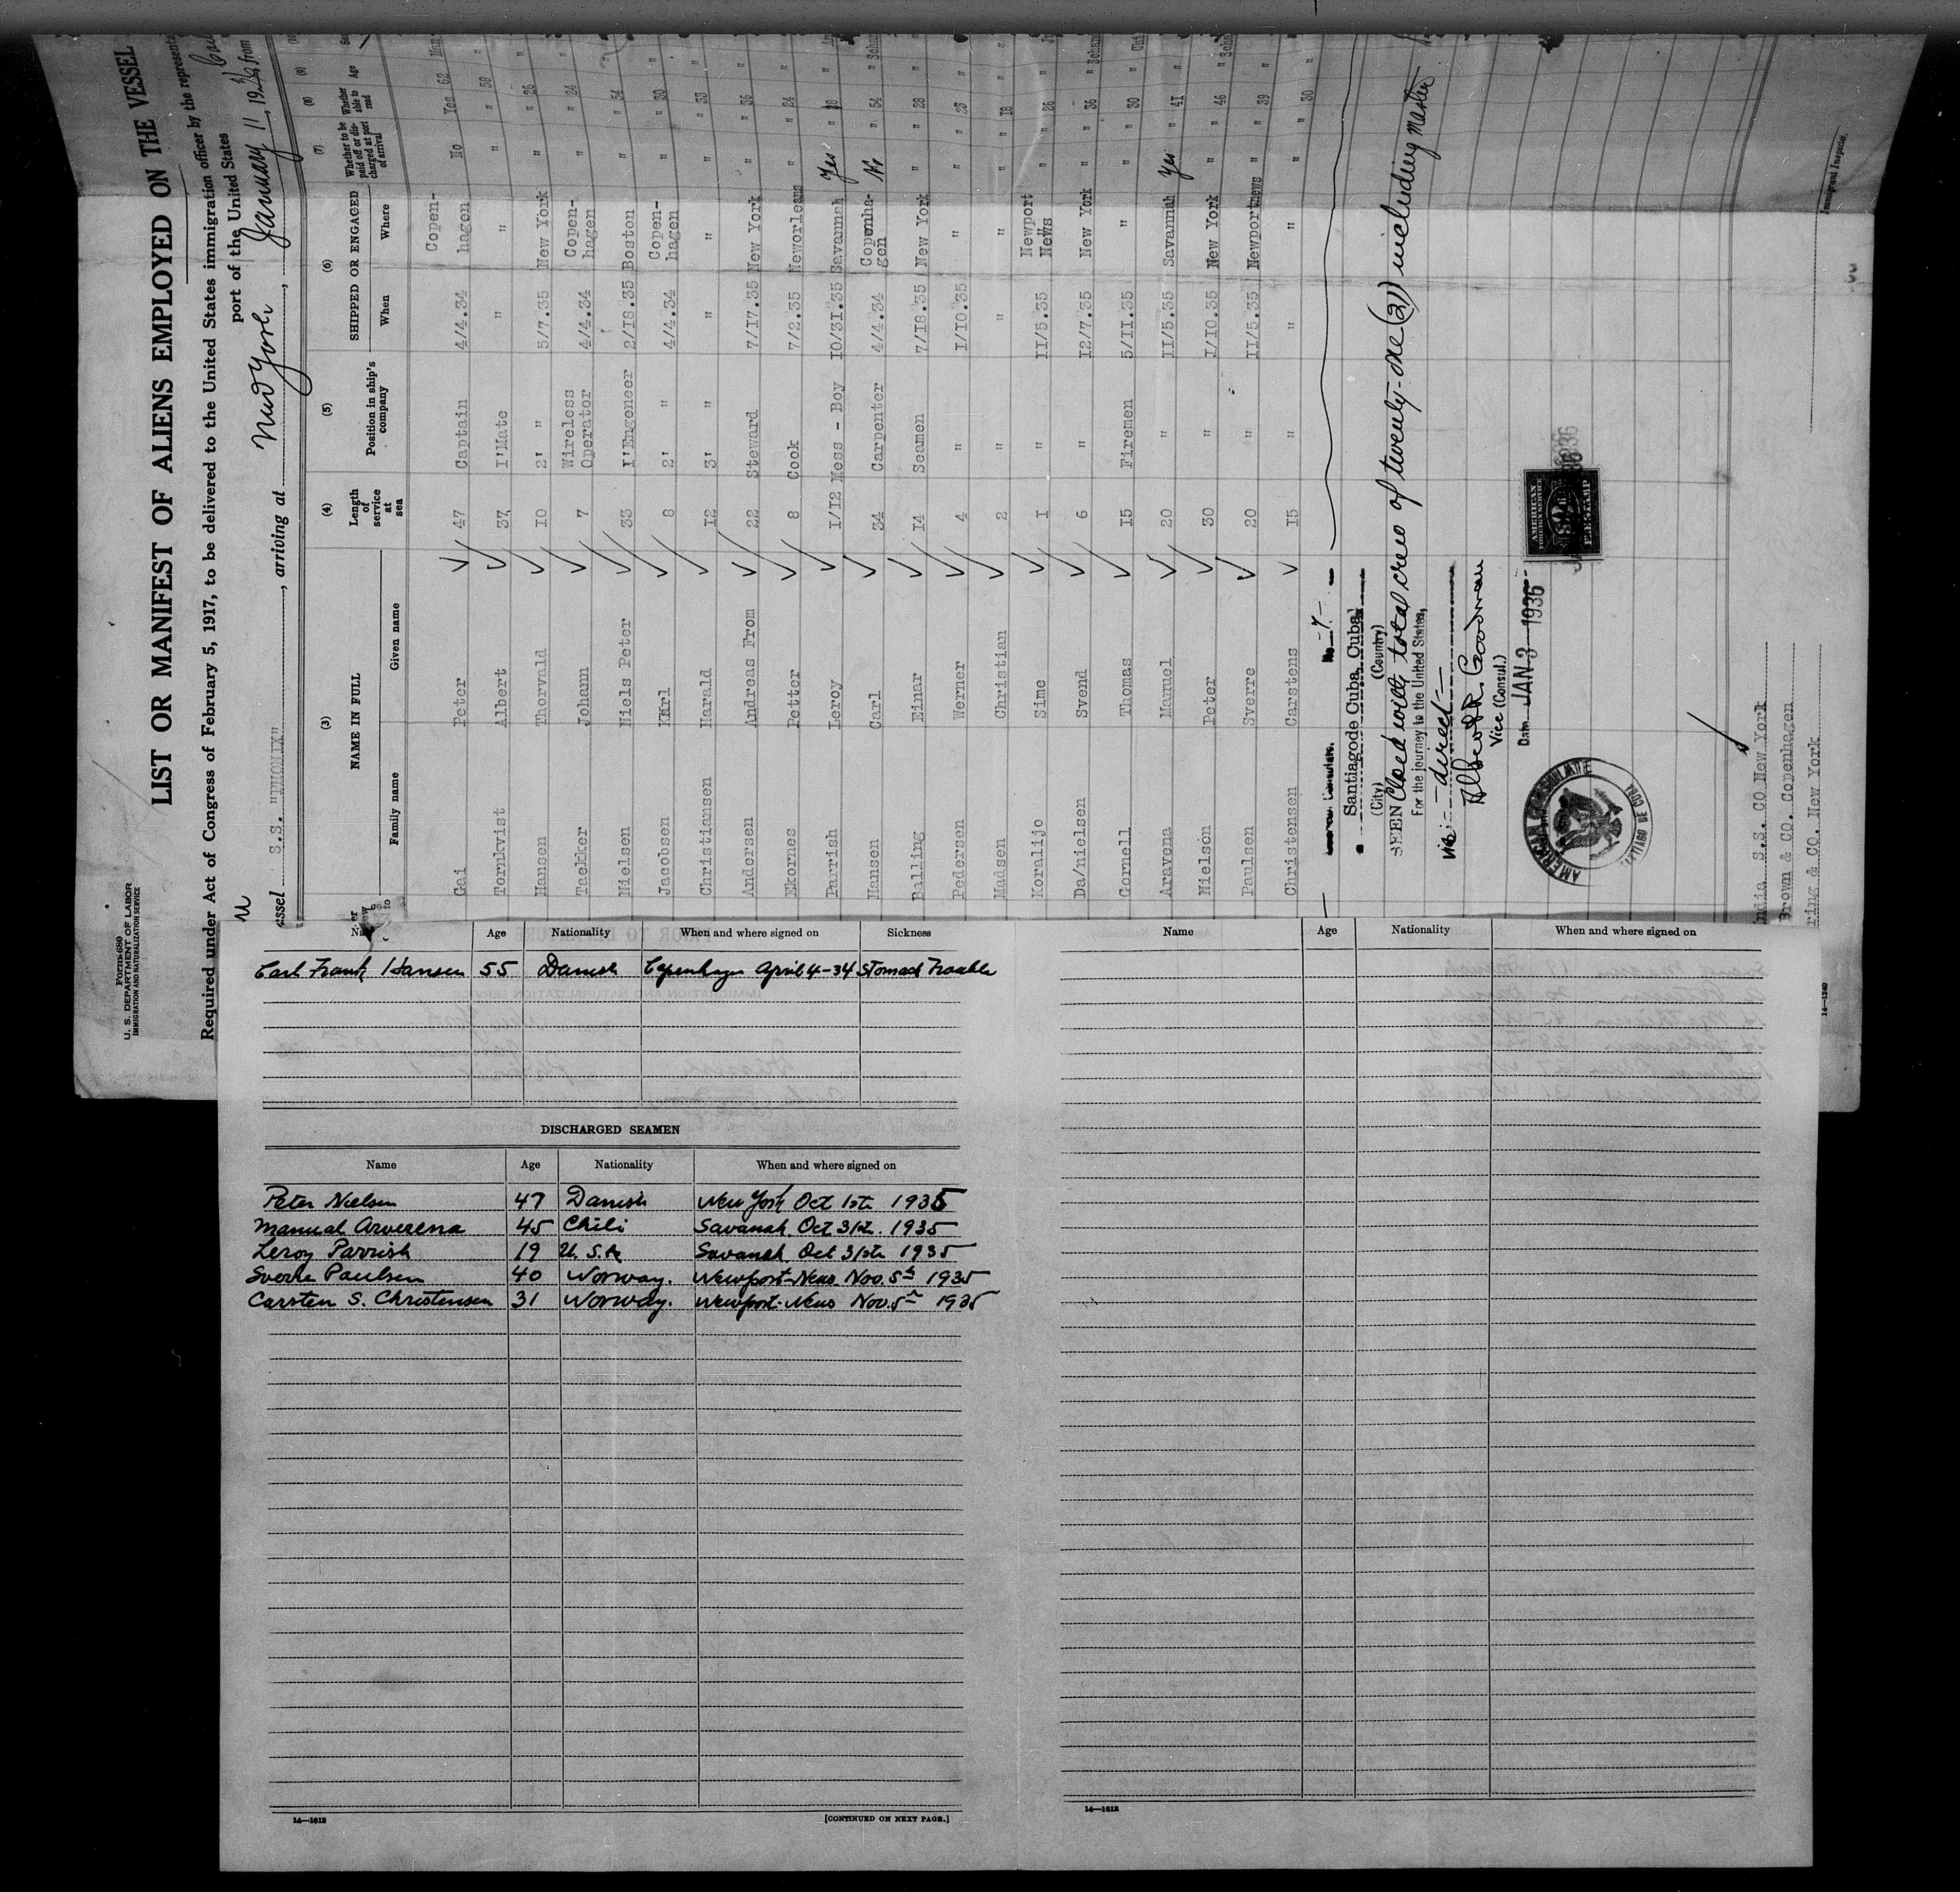 Form 680
U. S. DEPARTMENT OF LABOR
IMMIGRATION AND NATURALIZATION SERVICE
LIST OR MANIFEST OF ALIENS EMPLOYED ON THE VESSEL
Required under Act of Congress of February 5, 1917, to be delivered to the United States immigration officer by the representa
port of the United States
ssel S.S. "PHONIX", arriving at New York, January 11, 1936, from
(3) (4) (5) (6) (7) (8) (9)
NAME IN FULL Length of service at sea Position in ship's company SHIPPED OR ENGAGED Whether to be paid off or discharged at port of arrival Whether able to read Age
Family name Given name When Where
Gai Peter 47 Captain 4/4.34 Copenhagen No Yes 62
Tornkvist Albert 37 I'Mate " " " " 50
Hansen Thorvald 10 2' " 5/7.35 New York " " 26
Taekker Johann 7 Wireless Operator 4/4.34 Copenhagen " " 24
Nielsen Niels Peter 33 I'Engeneer 2/18.35 Boston " " 54
Jacobsen Karl 8 2' " 4/4.34 Copenhagen " " 30
Christiansen Harald 12 3' " " " " " 33
Andersen Andreas From 22 Steward 7/17.35 New York " " 36
Ekornes Petter 8 Cook 7/2.35 Neworleans " " 24
Parrish Leroy 1/12 Mess - Boy 10/31.35 Savannah Yes " 18
Hansen Carl 34 Carpenter 4/4.34 Copenhagen No " 54
Balling Einar 14 Seamen 7/18.35 New York " " 28
Pedersen Werner 4 " 1/10.35 " " " 23
Madsen Christian 2 " " " " " 18
Koralijo Sime 1 " 11/5.35 Newport News " " 26
Da/nielsen Svend 6 " 12/7.35 New York " " 36
Gornell Thomas 15 Firemen 5/11.35 " " " 30
Aravena Manuel 20 " 11/5.35 Savannah Yes " 41
Nielson Peter 30 " 1/10.35 New York " " 46
Paulsen Sverre 20 " 11/5.35 Newportnews " " 39
Christensen Carstens 15 " " " " " 30
No -7-
Santiagode Cuba, Cuba
(City) (Country)
SEEN Closed with total crew of twenty-one (21) including Master
For the journey to the United States,
via:- direct -
Vice (Consul.)
Date JAN 3 - 1936
AMERICAN CONSULATE
SANTIAGO DE CUBA
AMERICAN
FOREIGN SERVICE
FEE STAMP
India S.S. CO New York
Brown & CO. Copenhagen
ring & CO. New York
Immigrant Inspector.
14—1240
Name Age Nationality When and where signed on Sickness
Carl Frank Hansen 55 Danish Copenhagen April 4-34 Stomach Trouble
DISCHARGED SEAMEN
Name Age Nationality When and where signed on
Peter Nielsen 47 Danish New York Oct 1st 1935
Manual Arverena 45 Chili Savanah Oct 31st. 1935
Leroy Parrish 19 U.S.A Savanah Oct 31st 1935
Sverre Paulsen 40 Norway. Newport-News Nov. 5th 1935
Carsten S. Christensen 31 Norway. Newport-News Nov. 5th 1935
14—1613
[CONTINUED ON NEXT PAGE.]
Name Age Nationality When and where signed on
14—1613